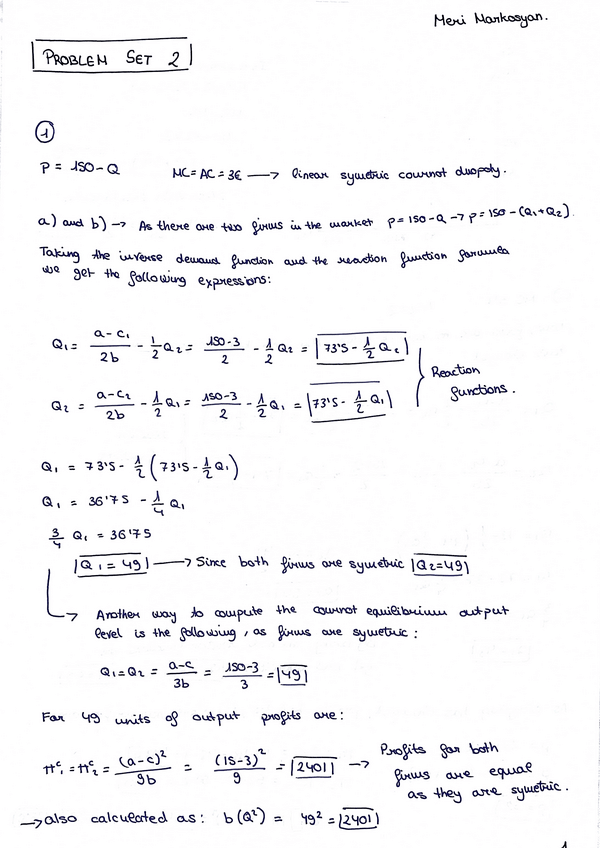 Meri Markosyan.
PROBLEM SET 2
1
P = 150 - Q MC = AC = 3€ → linear symetric cournot duopoly.
a) and b) → As there are two firms in the market p = 150 - Q → p = 150 - (Q₁ + Q₂).
Taking the inverse demand function and the reaction function formula
we get the following expressions:
Q₁ = (a - c₁)/2b - 1/2 Q₂ = (150 - 3)/2 - 1/2 Q₂ = 73'5 - 1/2 Q₂
Q₂ = (a - c₂)/2b - 1/2 Q₁ = (150 - 3)/2 - 1/2 Q₁ = 73'5 - 1/2 Q₁
Reaction
functions.
Q₁ = 73'5 - 1/2 (73'5 - 1/2 Q₁)
Q₁ = 36'75 - 1/4 Q₁
3/4 Q₁ = 36'75
Q₁ = 49 → Since both firms are symetric Q₂ = 49
→ Another way to compute the cournot equilibrium output
level is the following, as firms are symetric:
Q₁ = Q₂ = (a - c)/3b = (150 - 3)/3 = 49
For 49 units of output profits are:
π₁ᶜ = π₂ᶜ = (a - c)²/9b = (15 - 3)²/9 = 2401 → Profits for both
firms are equal
as they are symetric.
→ also calculated as: b(Q²) = 49² = 2401